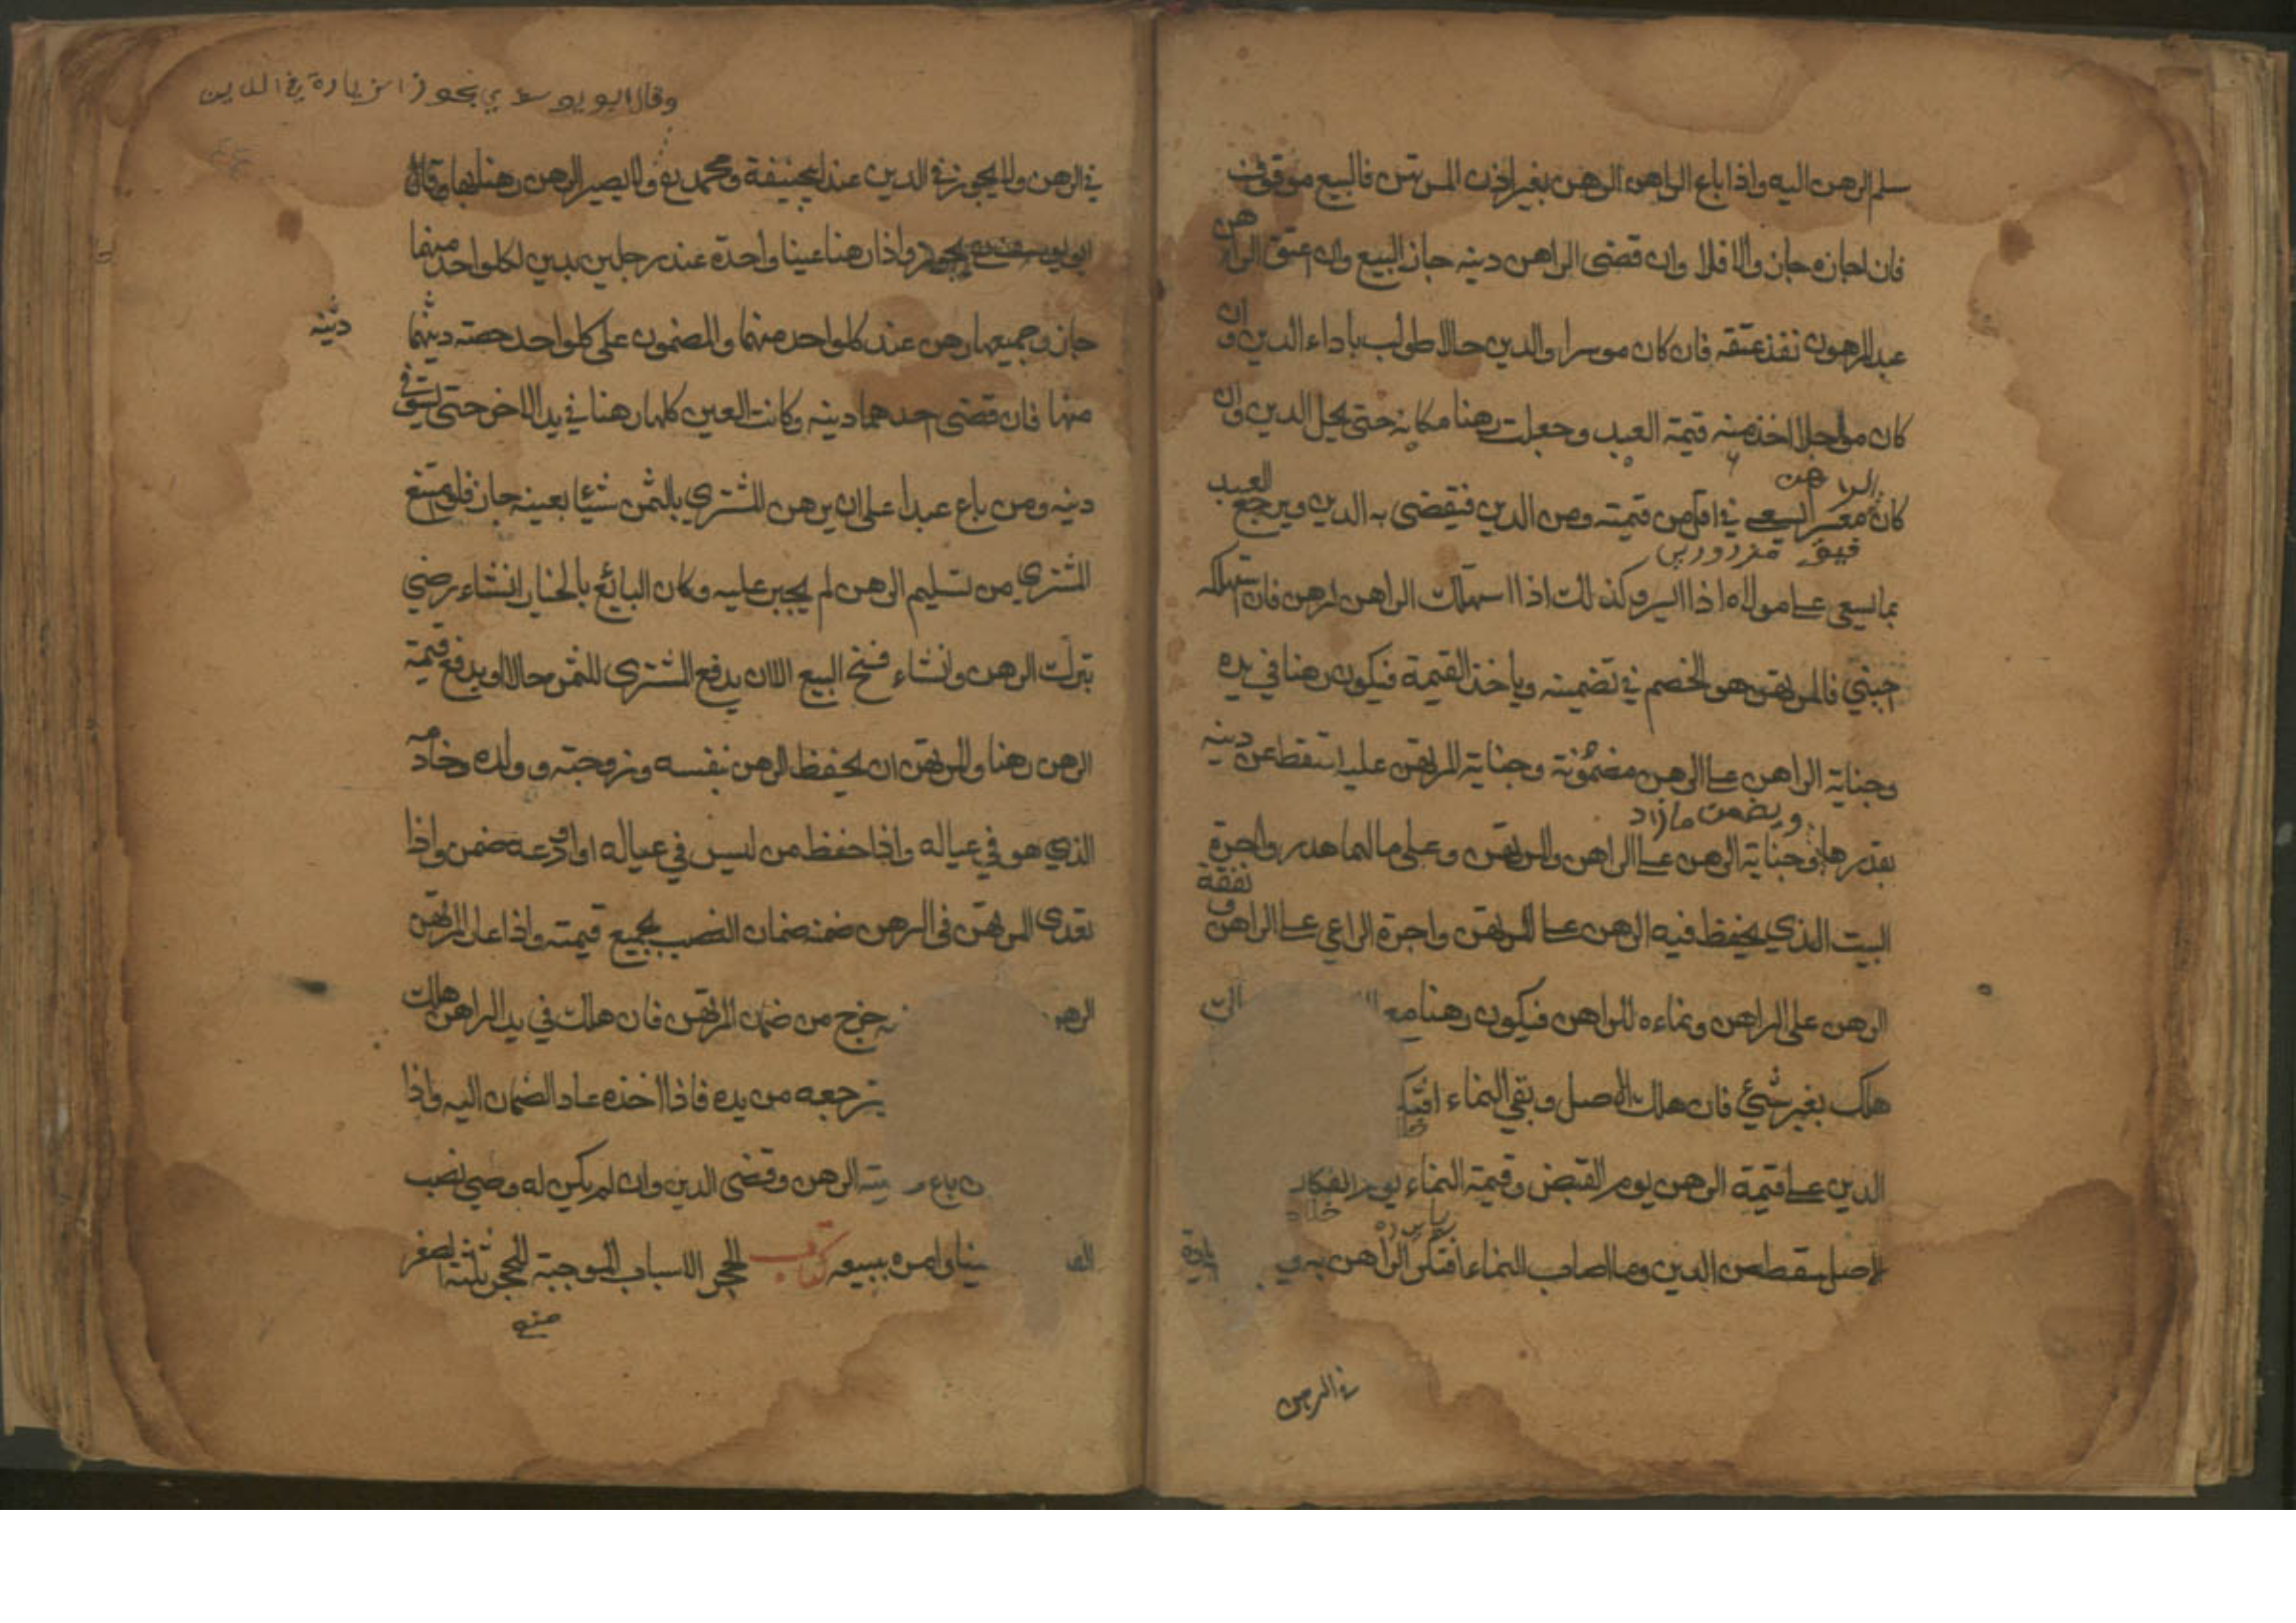 سلم الرهن اليه واذا باع الراهن الرهن بغير اذن المرتهن فالبيع موقوف
فان اجازه جاز والا فلا وان قضى الراهن دينه جاز البيع وان اعتق الراهن
عبد المرهون نفذ عتقه فان كان موسرا والدين حالا طولب باداء الدين وان
كان مؤجلا اخذ منه قيمة العبد وجعلت رهنا مكانه حتى يحل الدين وان
الراهن
كان معسر ايسعى في اقل من قيمته ومن الدين فيقضى به الدين ويرجع العبد
بما يسعى على مولاه اذا ايسر وكذلك اذا استهلك الراهن الرهن فان استهلكه
اجنبي فالمرتهن هو الخصم في تضمينه وياخذ القيمة فيكون رهنا في يده
وجناية الراهن على الرهن مضمونة وجناية المرتهن عليه تسقط عن دينه
ويضمن ما زاد
بقدرها وجناية الرهن على الراهن والمرتهن وعلى مالهما هدر واجرة
البيت الذي يحفظ فيه الرهن على المرتهن واجرة الراعي على الراهن ونفقة
الرهن على الراهن ونماءه للراهن فيكون رهنا مع
هلك بغير شئ فان هلك الاصل وبقي النماء
الدين على قيمة الرهن يوم القبض وقيمة النماء يوم الفكاك
الاصل سقط من الدين وما اصاب النماء افتكه الراهن به
في الرهن
وقال ابو يوسف يجوز الزيادة في الدين
في الرهن ولا يجوز في الدين عند ابيحنيفة ومحمد رح ولا يصير الرهن رهنا بها وقال
ابو يوسف رح يجوز واذا رهنا عينا واحدة عند رجلين بدين لكل واحد منهما
جاز وجميعها رهن عند كل واحد منهما والمضمون على كل واحد حصة دينهما
دينه
منها فان قضى احدهما دينه وكانت العين كلها رهنا في يد الاخر حتى يستوفي
دينه ومن باع عبدا على ان يرهن المشتري بالثمن شيئا بعينه جاز فلو امتنع
المشتري من تسليم الرهن لم يجبر عليه وكان البائع بالخيار انشاء رضي
بترك الرهن وانشاء فسخ البيع الا ان يدفع المشتري الثمن حالا او يدفع قيمة
الرهن رهنا وللمرتهن ان يحفظ الرهن بنفسه وزوجته وولده وخادمه
الذي هو في عياله واذا حفظ من ليس في عياله او اودعه ضمن واذا
تعدى المرتهن في الرهن ضمنه ضمان الغصب بجميع قيمته واذا اعار المرتهن
خرج من ضمان المرتهن فان هلك في يد الراهن هلك
يرجعه من يده فاذا اخذه عاد الضمان اليه واذا
باع وصيته الرهن وقضى الدين وان لم يكن له وصي نصب
وامره ببيعه كتاب الحجر الاسباب الموجبة للحجر ثلثة الصغر